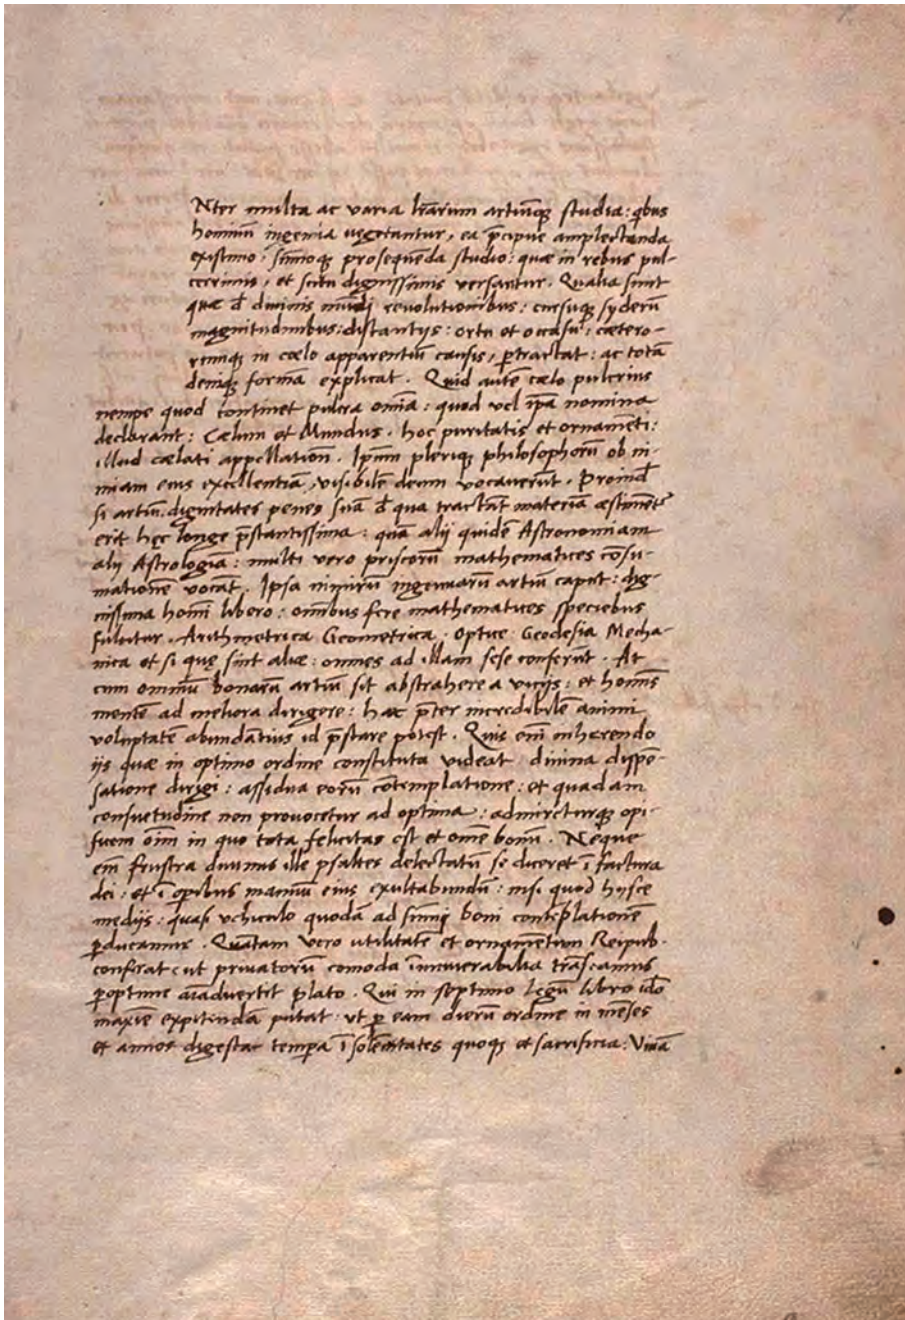 Nter multa ac varia lr̄arum artiumq; studia: qbus
hominū ingenia vegetantur, ea p̄cipue amplectanda
existimo, sūmoq; prosequenda studio: quæ in rebus pul-
cerrimis, et scitu dignissimis versantur. Qualia sunt
quæ d̄ diuinis mūdi reuolutionibus: cursuq; syderū
magnitudinibus: distantijs: ortu et occasu, cætero-
rumq; in cœlo apparentiū causis, ꝑtractat: ac totā
deniq; formā explicat. Quid autē cælo pulcrius
nempe quod continet pulcra om̄ia: quod vel ip̄a nomina
declarant: Cælum et Mundus. hoc puritatis et ornamēti:
illud cælati appellatiōn. Ip̄um pleriq; philosophorū ob ni-
miam eius excellentiā, visibilē deum vocauerūt. Proind̄
si artiū dignitates penes suā d̄ qua tractāt materiā æstimētᷣ
erit hęc longe p̄stantissima: quā alij quidē Astronomiam
alij Astrologiā: multi vero priscorū mathematices cōsu-
mationē vocāt. Ipsa nimirū ingenuarū artiū caput: dig-
nissima homī libero: om̄ibus fere mathematices speciebus
fulcitur. Arithmetrica Geometrica. Optice Geodesia Mecha-
nica et si quę sint aliæ: omnes ad illam sese conferūt. At
cum omniū bonarū artiū sit abstrahere a vicijs: et homīs
mentē ad meliora dirigere: hæc p̄ter incredibilē animi
voluptatē abundātius id p̄stare potest. Quis em̄ inherendo
ijs quæ in optimo ordine constituta videat diuina dispē-
satione dirigi: assidua eorū cōtemplatione: et quadam
consuetudine non prouocetur ad optima: admireturq; opi-
ficem oīm in quo tota felicitas est et om̄e bonū. Neque
em̄ frustra diuinus ille psaltes delectatū se diceret ī factura
dei: et ī opibus manuū eius exultabundū: nisi quod hijsce
medijs: quasi vehiculo quodā ad sūmi boni contēplationē
ꝑducamur. Quātam vero utilitatē et ornamētum Reipub.
conferat (ut priuatorū comoda īnumerabilia trāseamus
ꝑoptime aīaduertit Plato. Qui in septimo legū libro id̄o
maxīe expetendā putat: ut ꝑ eam dierū ordine in mēses
et annos digesta tempa ī solēnitates quoq; et sacrificia: Viuā